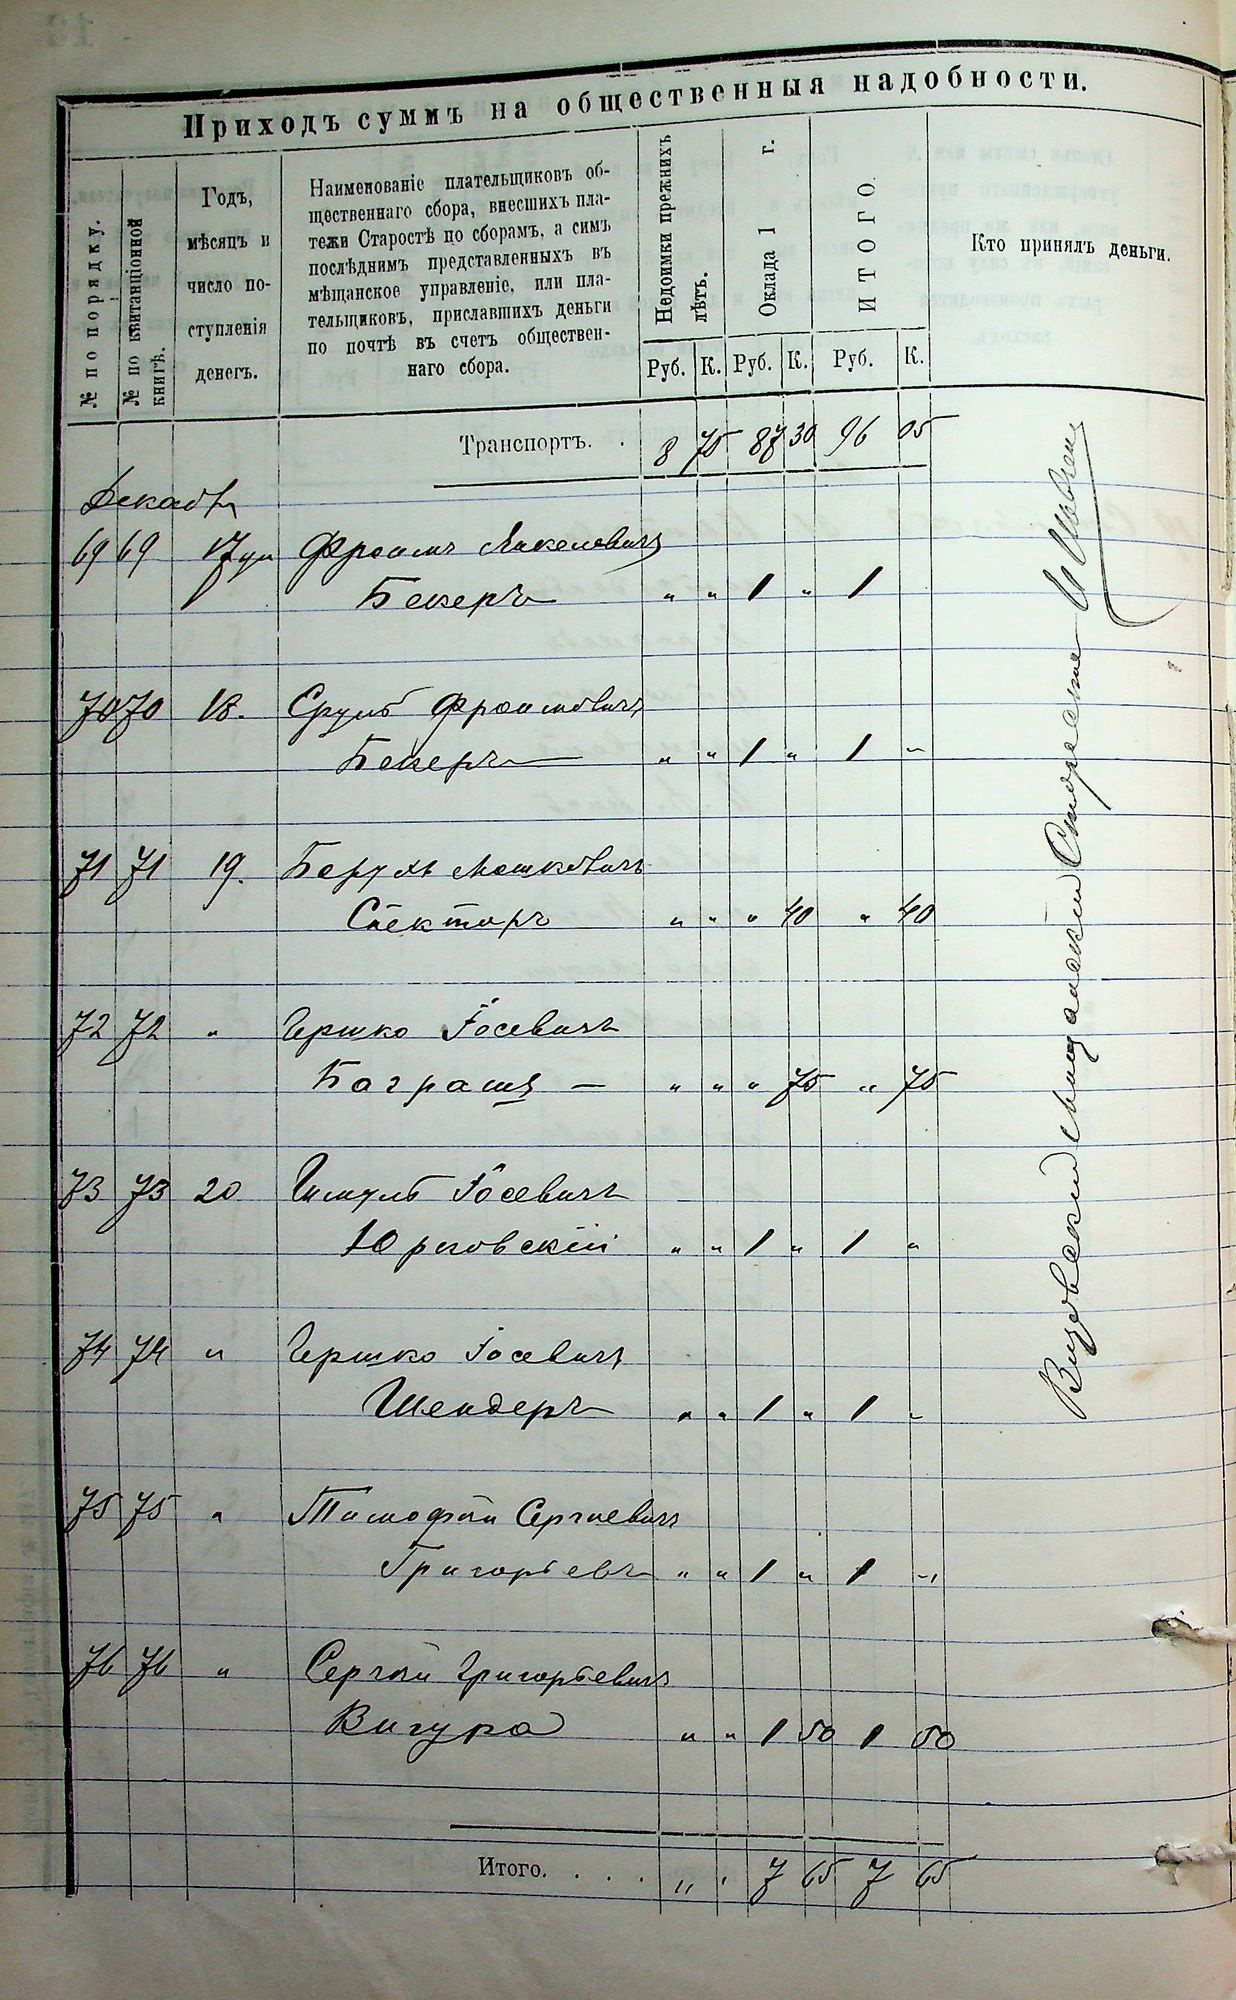 Приходъ суммъ на общественныя надобности.
№ по порядку.
№ по квитанціонной
книгѣ.
Годъ,
мѣсяцъ и
число по-
ступленія
денегъ.
Наименованіе плательщиковъ об-
щественнаго сбора, внесшихъ пла-
тежи Старостѣ по сборамъ, а симъ
послѣднимъ представленныхъ въ
мѣщанское управленіе, или пла-
тельщиковъ, приславшихъ деньги
по почтѣ въ счетъ обществен-
наго сбора.
Недоимки прежнихъ
лѣтъ.
Оклада 1 г.
ИТОГО.
Кто принялъ деньги.
Руб. К. Руб. К. Руб. К.
Транспортъ. . 8 75 87 30 96 05
69 69 17
Бекеръ " " 1 " 1
70 70 18. Сруль Фроимовичъ
Бекеръ " " 1 " 1 "
71 71 19. Беруль Мошковичъ
Спекторъ " " " 40 " 40
72 72 " Гершко Іосевичъ
" " " 75 " 75
73 73 20 Шмуль Іосевичъ
Юрковскій " " 1 " 1 "
74 74 " Гершко Іосевичъ
Шендеръ " " 1 " 1 "
75 75 " Тимофей Сергіевичъ
Григорьевъ " " 1 " 1 "
76 76 " Сергѣй Григорьевичъ
Вигура " " 1 50 1 50
Итого. . . . " " 7 65 7 65
Мѣщанскій Староста